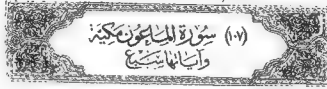 (١٠٧) سُورَةُ المَاعُونِ مَكِيَّة
وَآيَاتُهَا سَبْعٌ